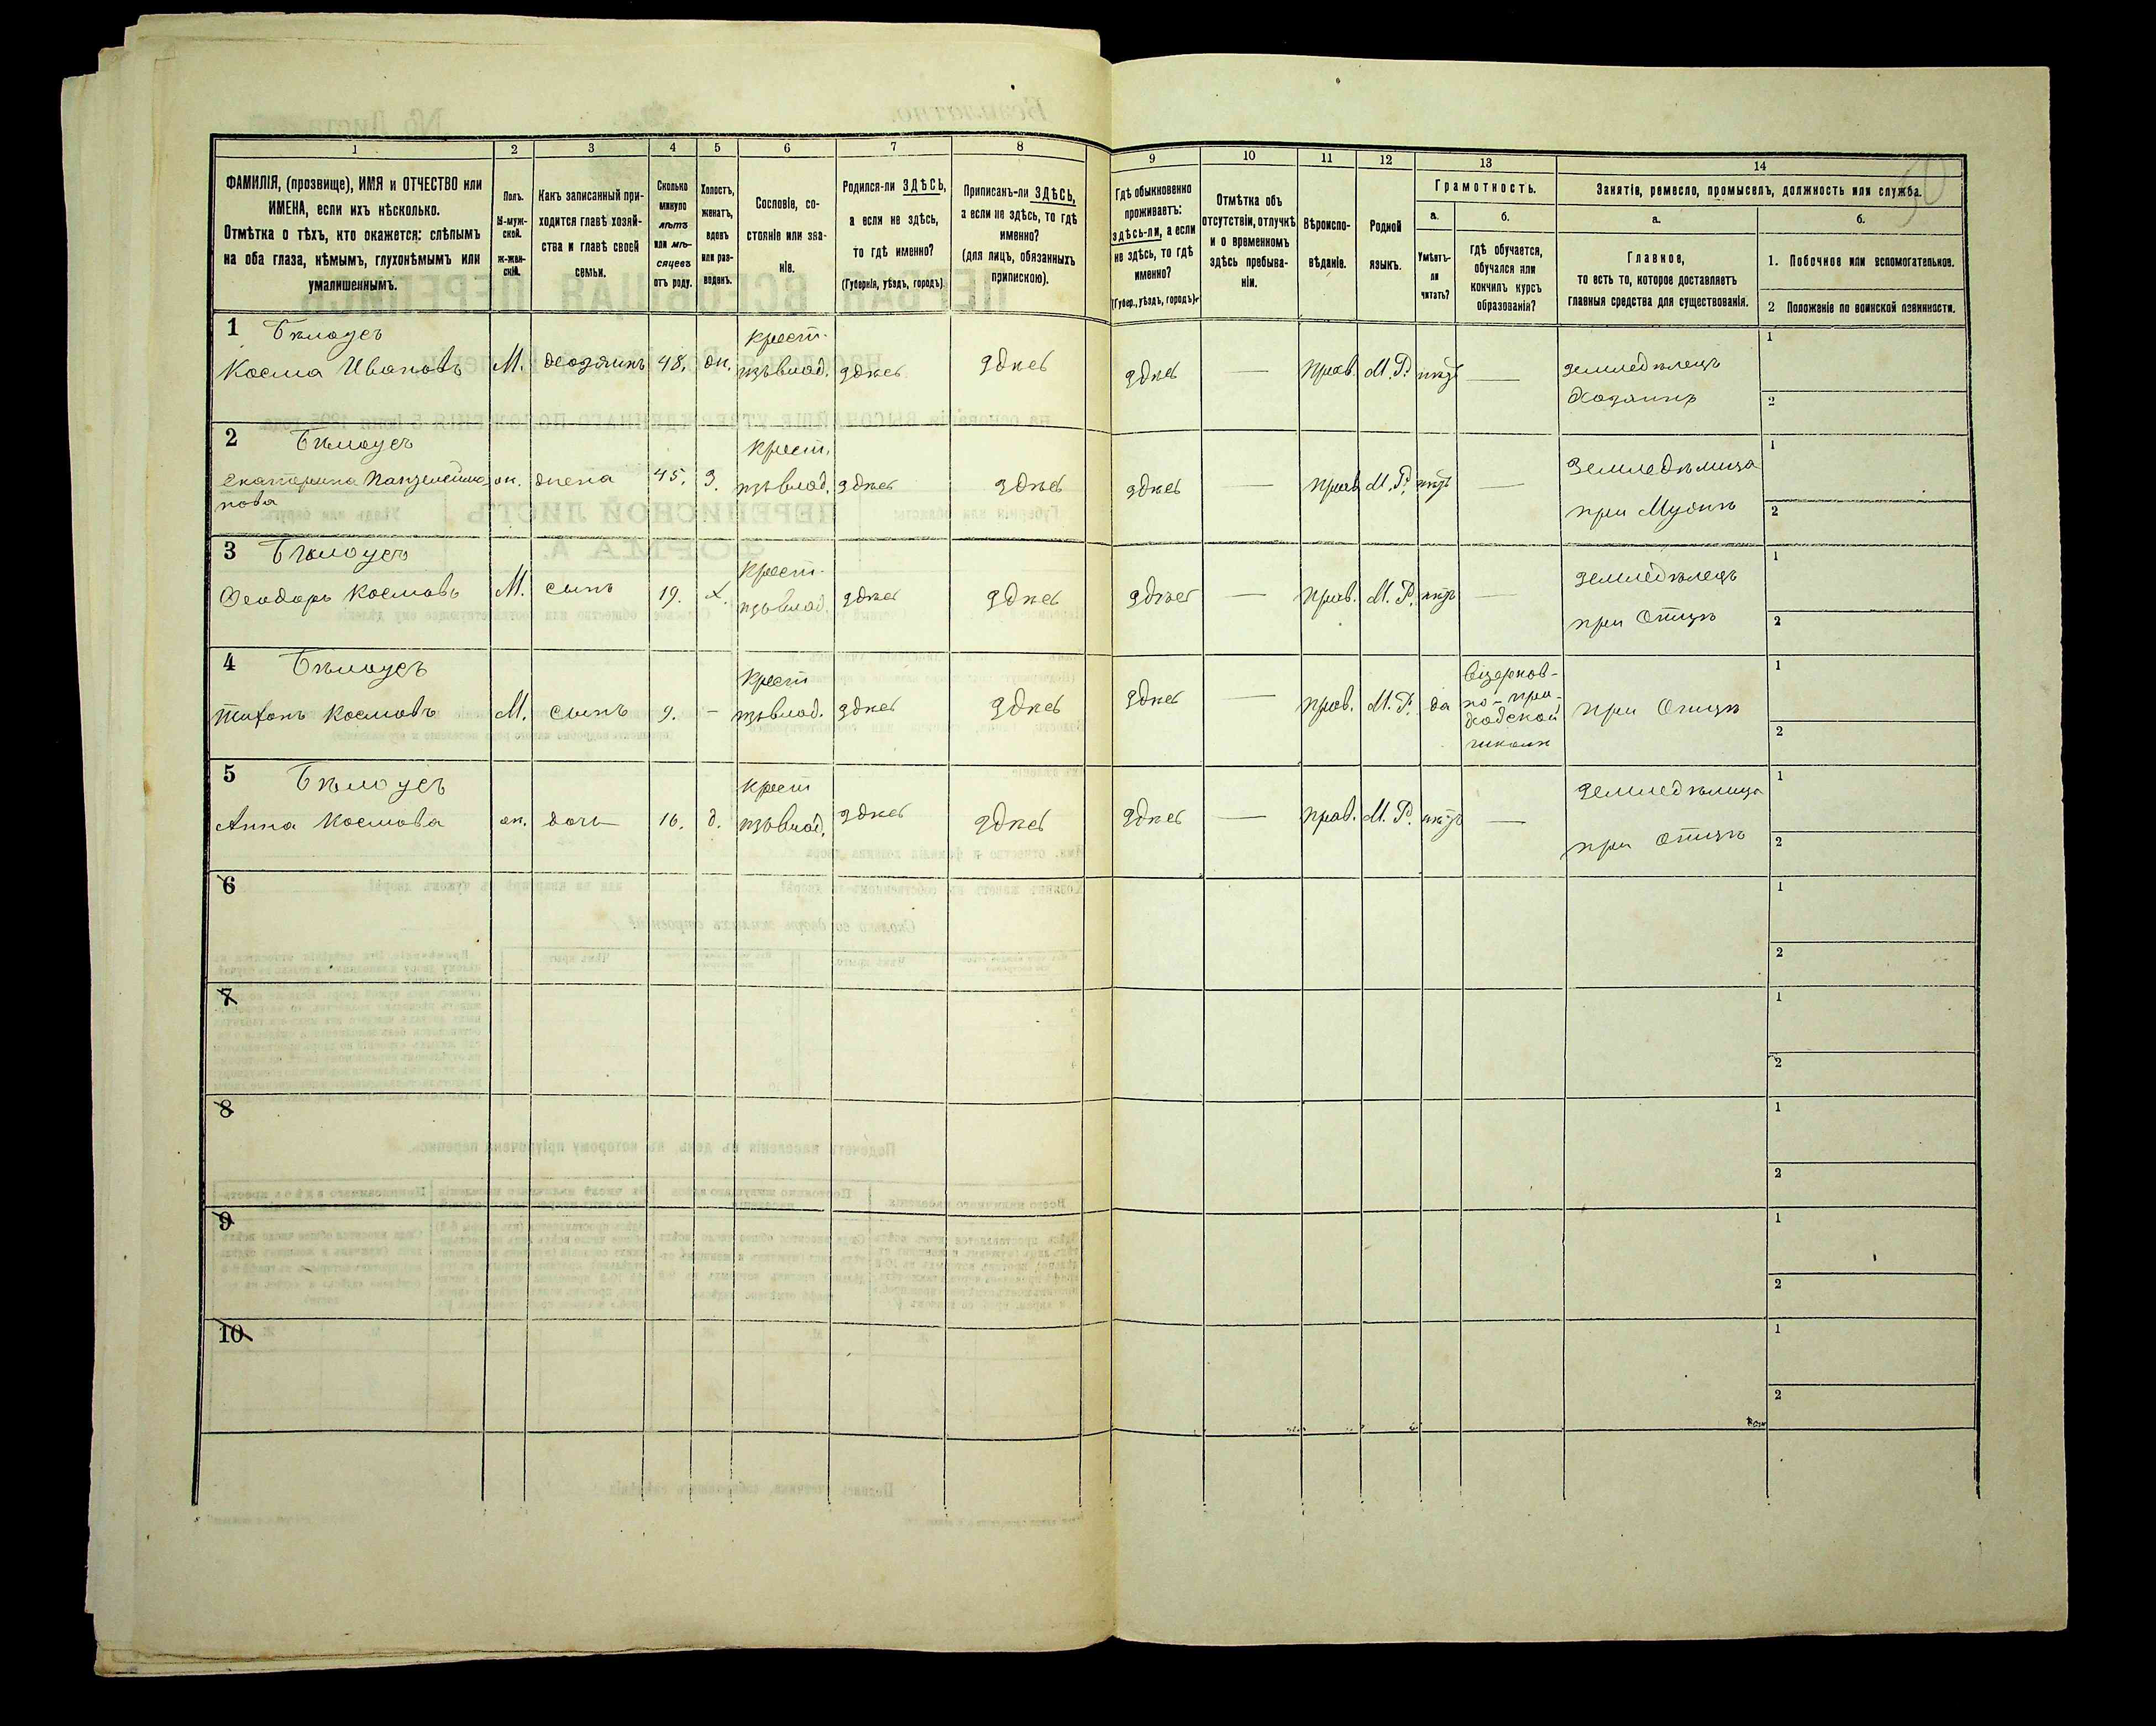 50
1
2
3
4
5
6
7
8
9
10
11
12
13
14
ФАМИЛІЯ, (прозвище), ИМЯ и ОТЧЕСТВО или
ИМЕНА, если ихъ нѣсколько.
Отмѣтка о тѣхъ, кто окажется: слѣпымъ
на оба глаза, нѣмымъ, глухонѣмымъ или
умалишеннымъ.
Полъ.
М-муж-
ской.
ж-жен-
скій.
Какъ записанный при-
ходится главѣ хозяй-
ства и главѣ своей
семьи.
Сколько
минуло
лѣтъ
или мѣ-
сяцевъ
отъ роду.
Холостъ,
женатъ,
вдовъ
или раз-
веденъ.
Сословіе, со-
стояніе или зва-
ніе.
Родился-ли ЗДѢСЬ,
а если не здѣсь,
то гдѣ именно?
(Губернія, уѣздъ, городъ).
Приписанъ-ли ЗДѢСЬ,
а если не здѣсь, то гдѣ
именно?
(для лицъ, обязанныхъ
припискою).
Гдѣ обыкновенно
проживаетъ:
здѣсь-ли, а если
не здѣсь, то гдѣ
именно?
(Губер., уѣздъ, городъ).
Отмѣтка объ
отсутствіи, отлучкѣ
и о временномъ
здѣсь пребыва-
ніи.
Вѣроиспо-
вѣданіе.
Родной
языкъ.
Грамотность.
а.
Умѣетъ-
ли
читать?
б.
гдѣ обучается,
обучался или
кончилъ курсъ
образованія?
Занятіе, ремесло, промыселъ, должность или служба.
а.
Главное,
то есть то, которое доставляетъ
главныя средства для существованія.
б.
1. Побочное или вспомогательное.
2 Положеніе по воинской повинности.
1 Бѣлоусъ
Косма Ивановъ М. хозяинъ 48. жн. крест.
изъвлад. здѣсь здѣсь здѣсь — прав. М. Р. нѣтъ — земледѣлецъ
хозяинъ
1
2
2 Бѣлоусъ
Екатерина Пантелеймо
нова
ж. жена 45. З. крест.
изъвлад. здѣсь здѣсь здѣсь — прав М. Р. нѣтъ — земледѣлица
при Мужѣ
1
2
3 Бѣлоусъ
Ѳеодоръ Космовъ М. сынъ 19. х. крест.
изъвлад. здѣсь здѣсь здѣсь — прав. М. Р. нѣтъ — земледѣлецъ
при Отцѣ
1
2
4 Бѣлоусъ
Тихонъ Космовъ М. сынъ 9. - крест
изъвлад. здѣсь здѣсь здѣсь — прав. М. Р. да
вцерков-
но-при-
ходской
школѣ
при Отцѣ
1
2
5 Бѣлоусъ
Анна Космова ж. дочь 16. д. крест
изъвлад. здѣсь здѣсь здѣсь — прав. М. Р. нѣтъ — земледѣлица
при отцѣ
1
2
6
1
2
7
1
2
8
1
2
9
1
2
10
1
2